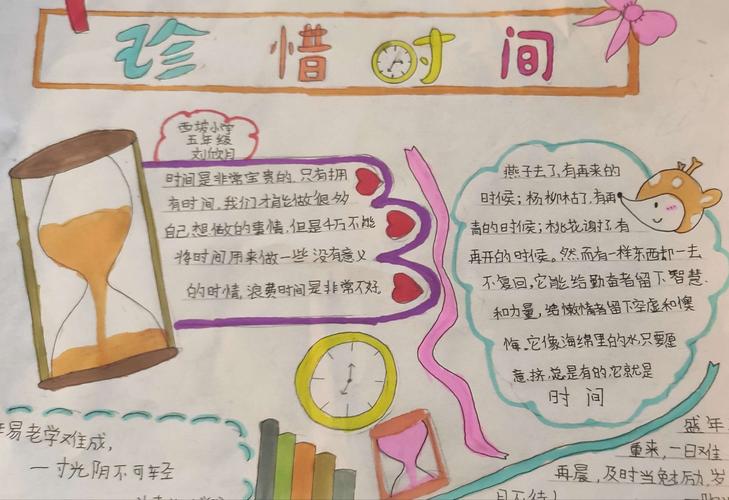 珍惜时间
西坡小学
五年级
刘欣月
时间是非常宝贵的,只有拥
有时间,我们才能做很多
自己想做的事情,但是千万不能
将时间用来做一些没有意义
的时情,浪费时间是非常不好
燕子去了,有再来的
时候;杨柳枯了,有再
青的时候;桃花谢了,有
再开的时候。然而有一样东西却一去
不复回,它能给勤奋者留下智慧
和力量,给懒惰者留下空虚和懊
悔。它像海绵里的水,只要愿
意挤,总是有的,它就是
时间
易老学难成,
一寸光阴不可轻
盛年
重来,一日难
再晨,及时当勉励,岁
月不待